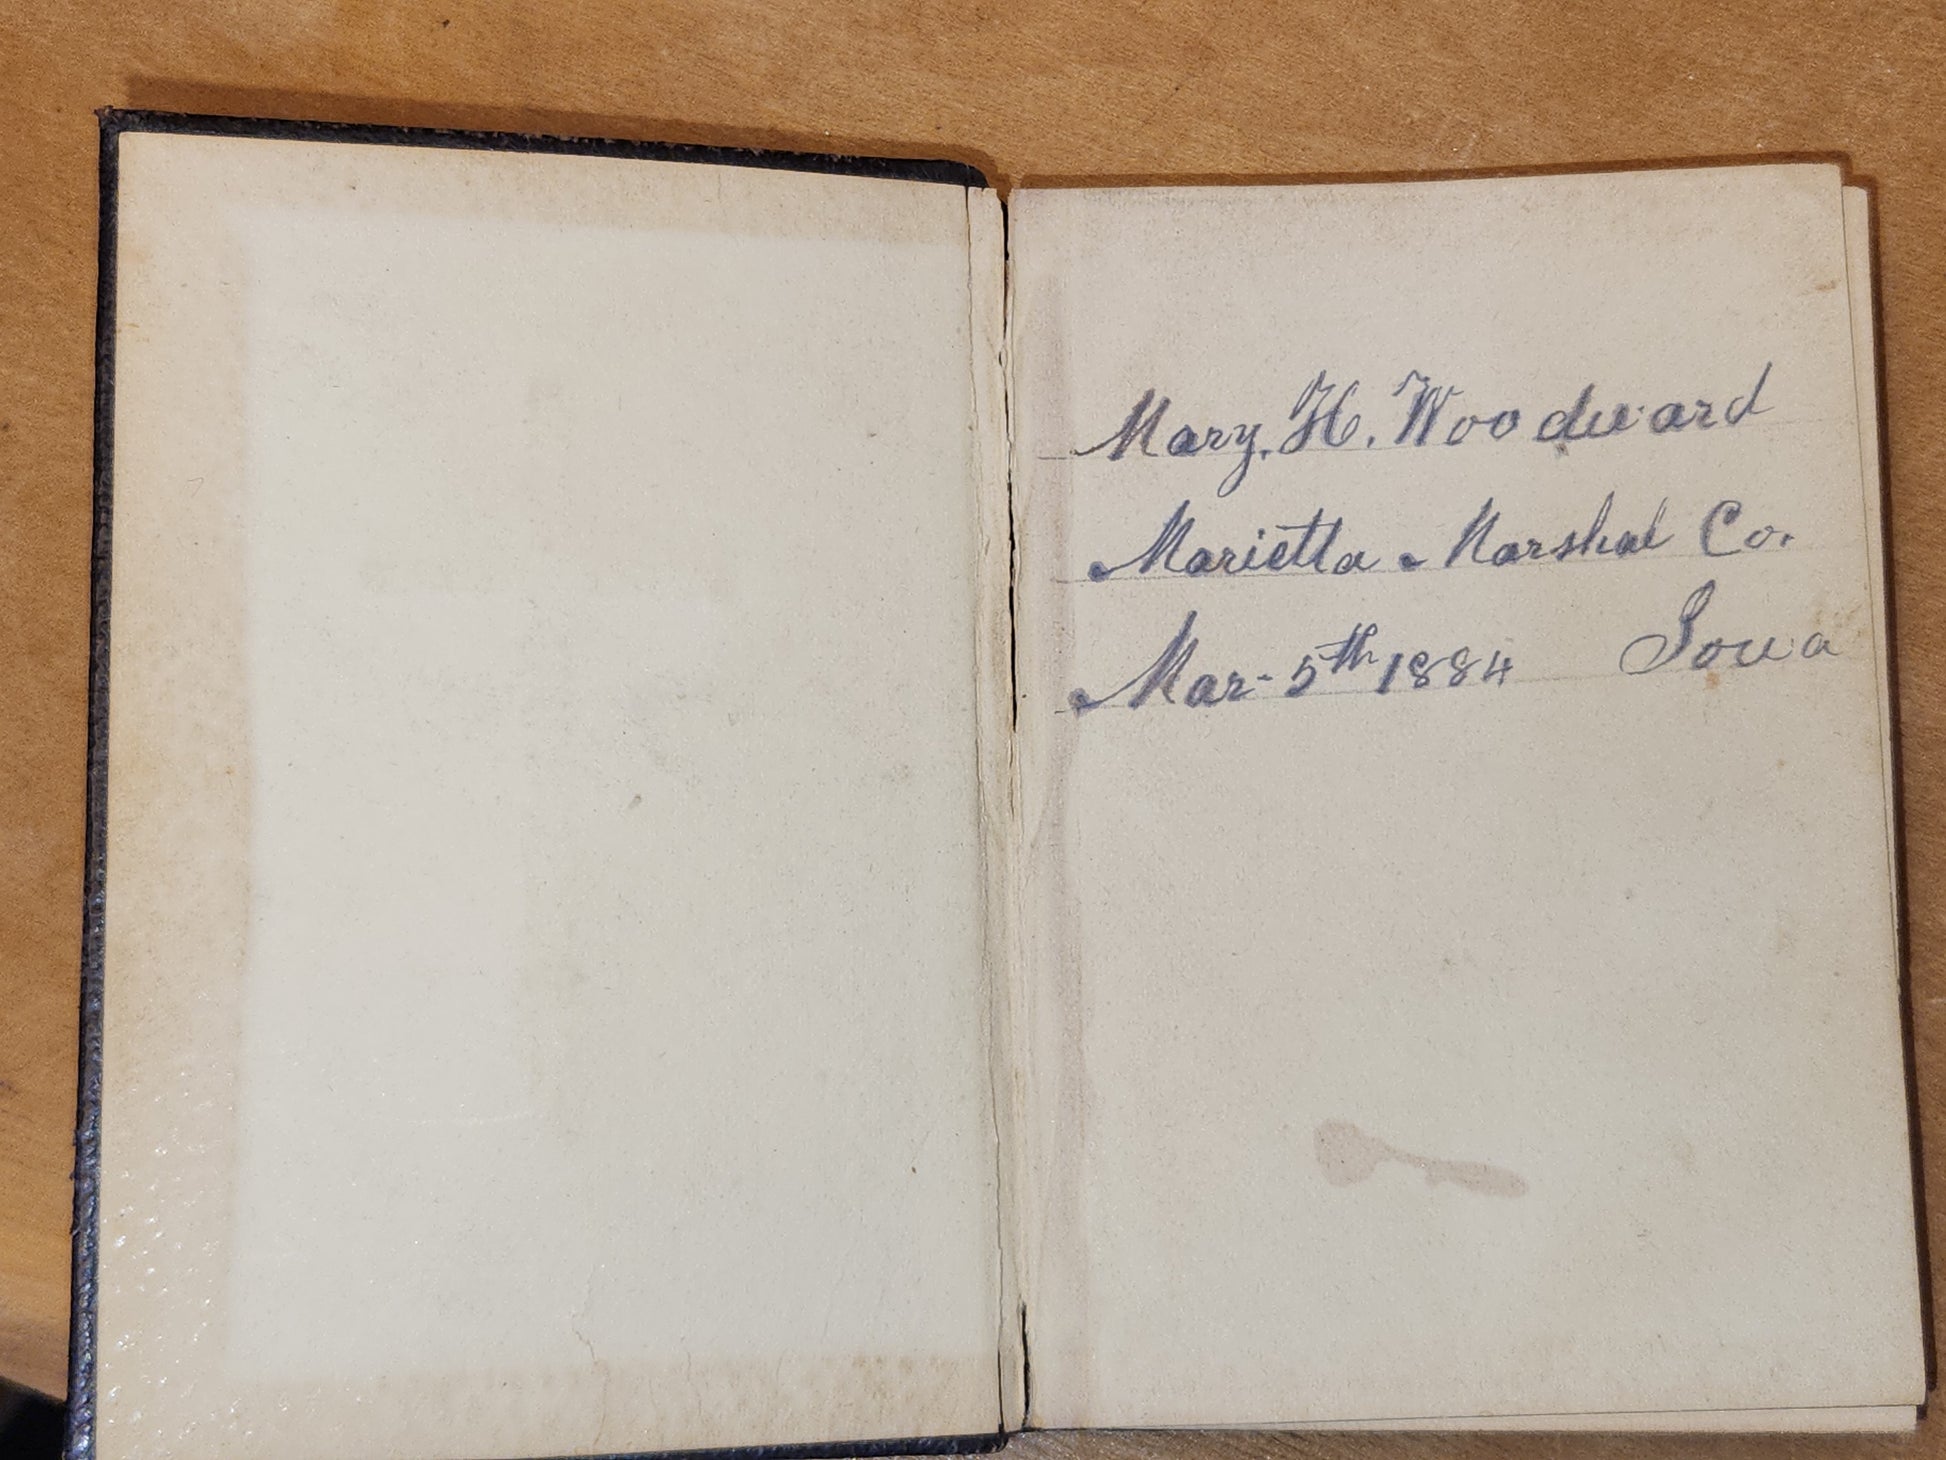 Mary. H. Woodward
Marietta Marshal Co.
Mar- 5th 1884 Iowa